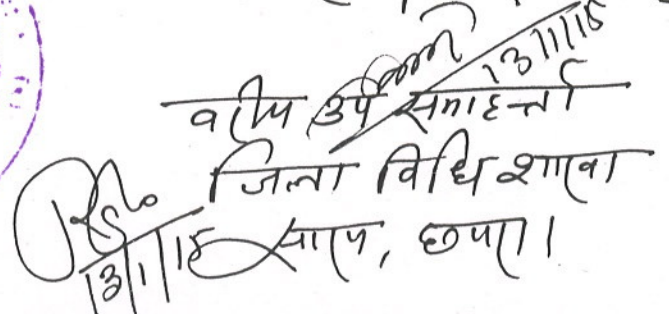 13/11/18
वरीय उप समाहर्त्ता
जिला विधि शाखा
13/11/18 सारण, छपरा।